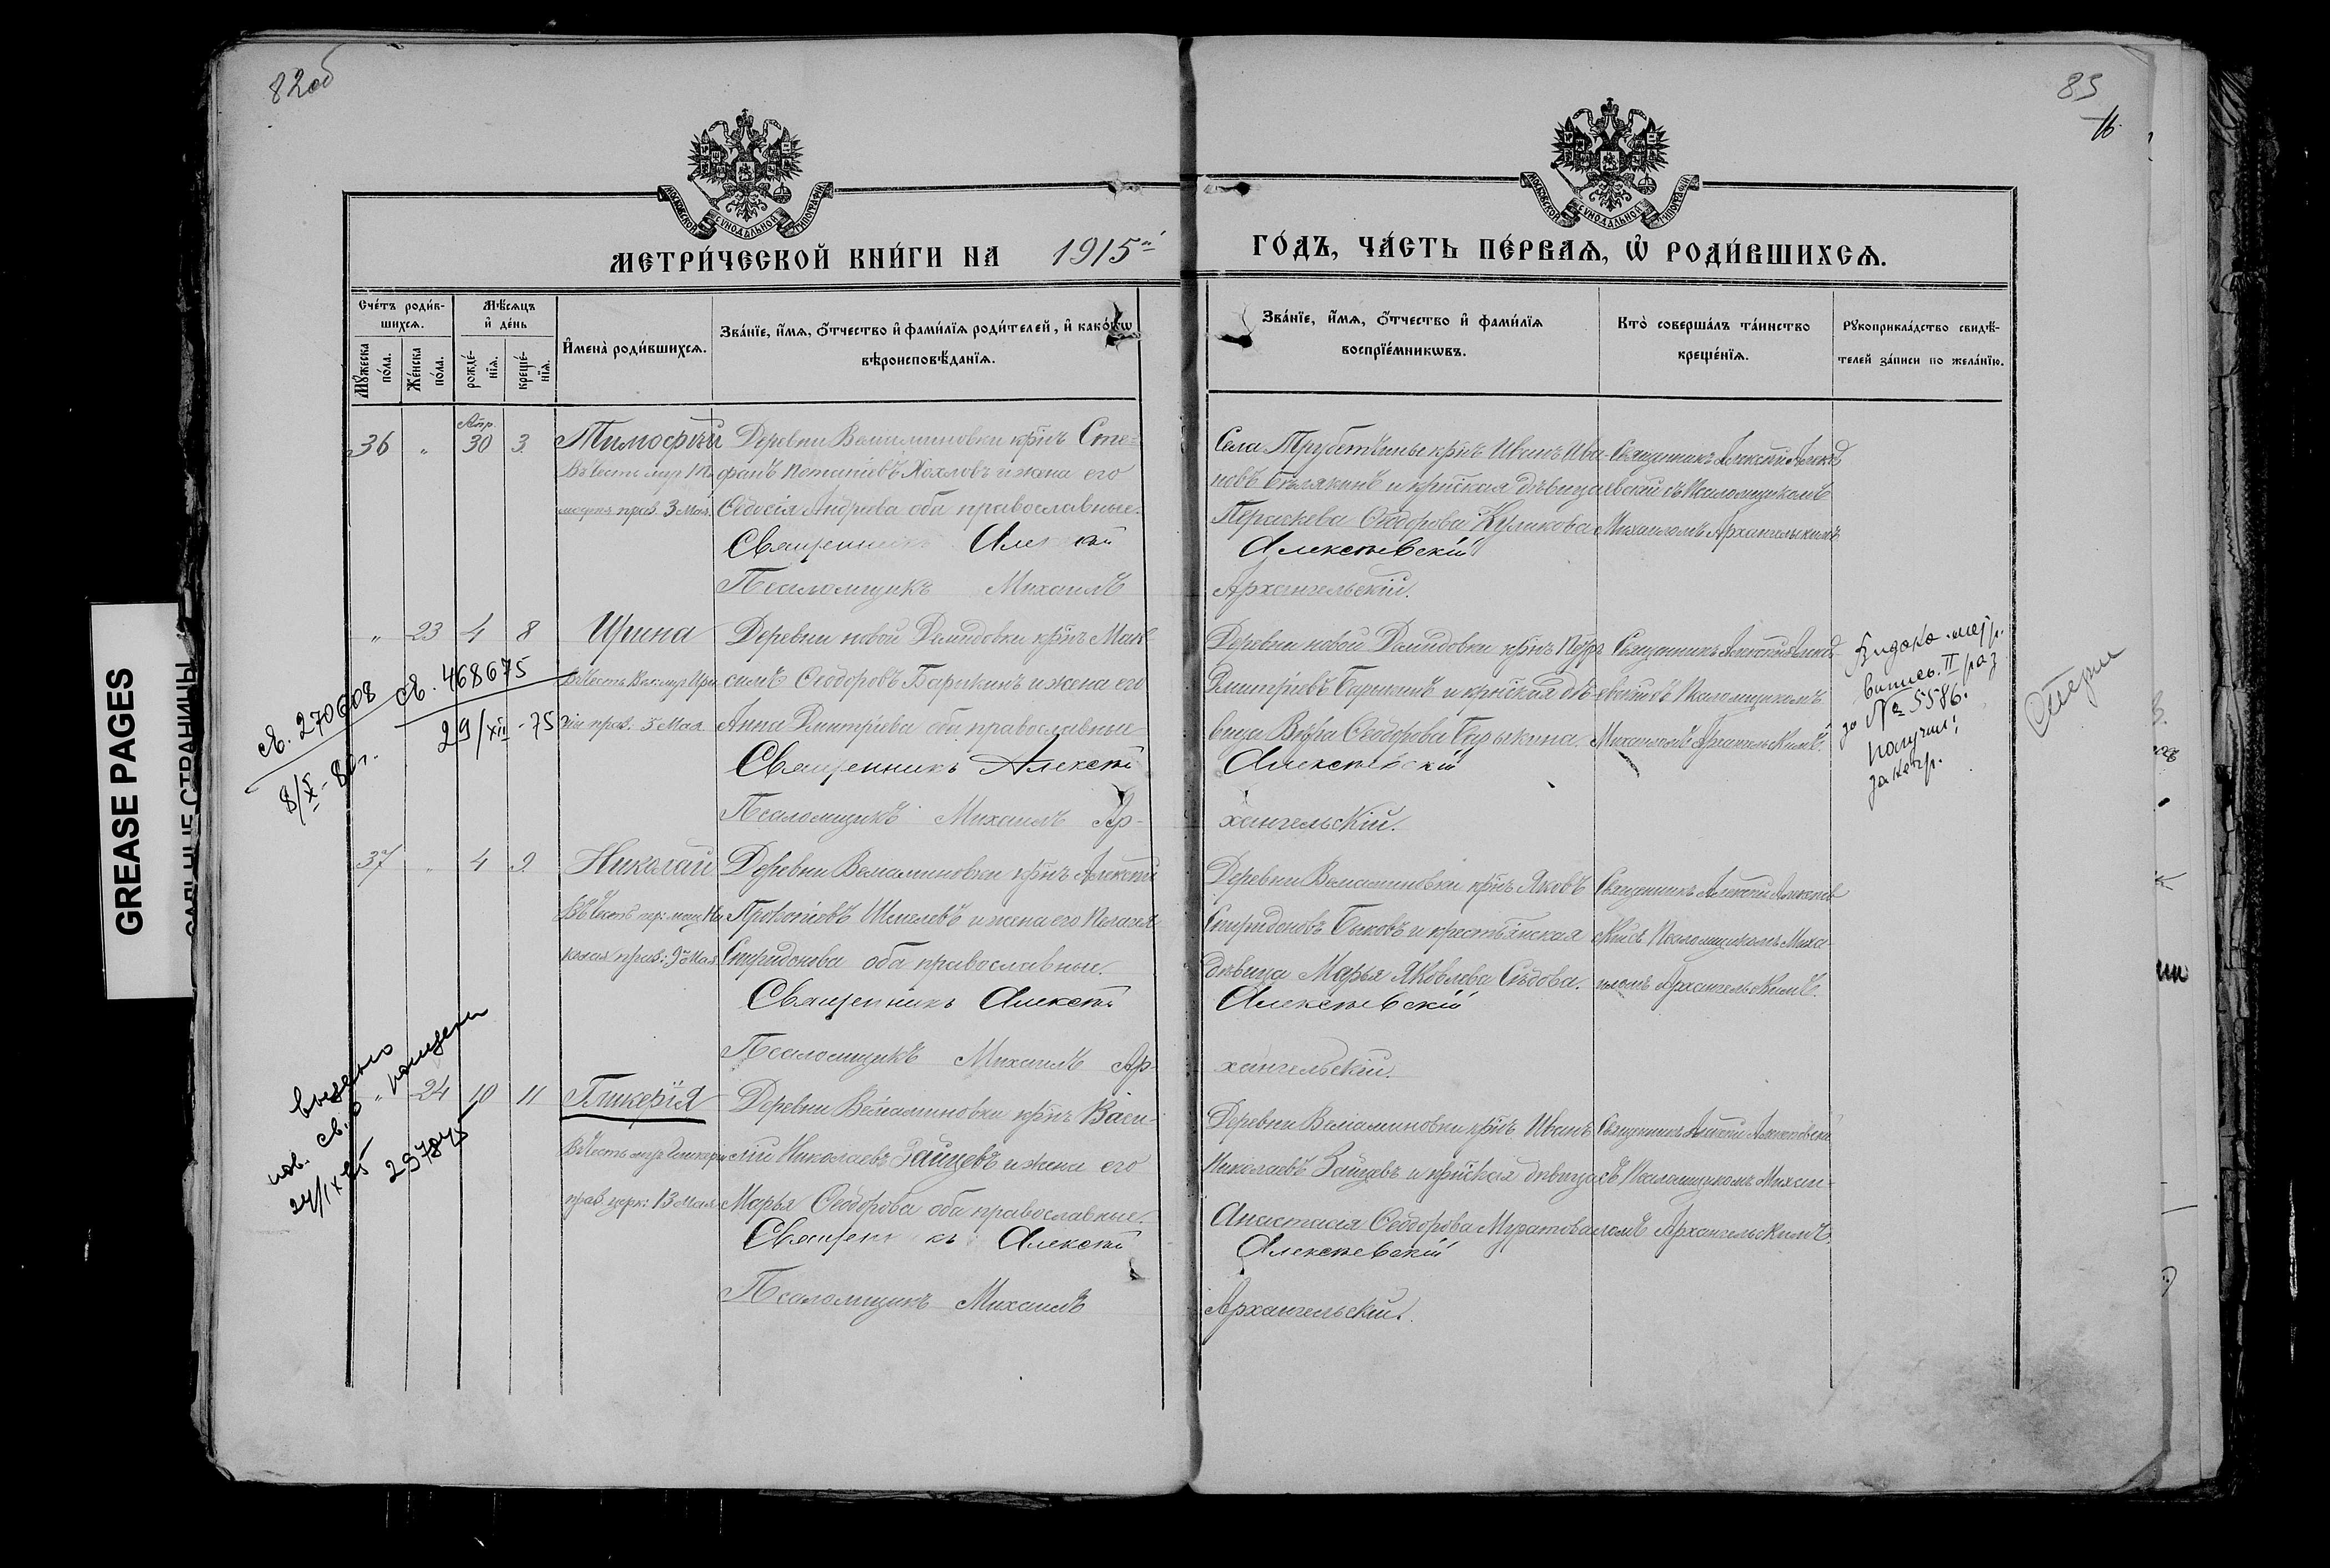 82об
83
16
МЕТРИ́ЧЕСКОЙ КНИ́ГИ НА 1915й
ГО́ДЪ, ЧА́СТЬ ПЕ́РВАѦ, Ѡ҆ РОДИ́ВШИХСѦ.
Сче́тъ роди́в-
шихсѧ.
Мꙋ́жеска
по́ла.
Же́нска
по́ла.
Мѣ́сѧцъ
и҆ де́нь
рожде́-
нїѧ.
креще́-
нїѧ.
И҆мена̀ роди́вшихсѧ.
Зва́нїе, и҆́мѧ, ѻ҆́тчество и҆ фами́лїѧ роди́телей, и҆ како́гѡ
вѣроисповѣ́данїѧ.
Зва́нїе, и҆́мѧ, ѻ҆́тчество и҆ фами́лїѧ
воспрїе́мникѡвъ.
Кто̀ соверша́лъ та́инство
креще́нїѧ.
Рꙋкоприкла́дство свидѣ́-
телей за́писи по жела́нїю.
36 " Апр. 30 3.
Тимофѣй
Въ честь муч. Ти-
мофея праз. 3 Мая.
Деревни Вельяминовки кр͠нъ Сте-
фанъ Потапіевъ Хохловъ и жена его
Ѳеодосія Андреева оба православные.
Священникъ Алексѣй
Псаломщикъ Михаилъ
Села Трубетчины кр͠нъ Иванъ Ива-
новъ Бѣлякинъ и кр͠нская дѣвица
Параскева Ѳеодорова Куликова
Алексѣевскій
Архангельскій.
Священникъ Алексѣй Алексѣ-
евскій съ Псаломщикомъ
Михаиломъ Архангельскимъ
" 23 4 8
Ирина
праз. 5 Мая
Деревни новой Демидовки кр͠нъ Мак-
симъ Ѳеодоровъ Барыкинъ и жена его
Анна Дмитріева оба православные
Священникъ Алексѣй
Псаломщикъ Михаилъ Ар-
Деревни новой Демидовки кр͠нъ Петръ
Дмитріевъ Барыкинъ и кр͠нская дѣ-
вица Вѣра Ѳеодорова Барыкина.
Алексѣевскій
хангельскій.
Священникъ Алексѣй Алексѣ-
евскій съ Псаломщикомъ
Михаиломъ Архангельскимъ.
Выдано
II раз
за № 5586.
получил:
св. 270608
8/X - 80г.
св. 468675
29/XII - 75
37 " 4 9.
Николай
Въ честь
праз: 9го Мая
Деревни Вельяминовки кр͠нъ Алексѣй
Прокопіевъ Шмелевъ и жена его Пелагея
Спиридонова оба православные.
Священникъ Алексѣй
Псаломщикъ Михаилъ Ар-
Деревни Вельяминовки кр͠нъ Яковъ
Спиридоновъ Быковъ и крестьянская
дѣвица Марья Яковлева Сѣдова.
Алексѣевскій
хангельскій.
Священникъ Алексѣй Алексѣев-
скій съ Псаломщикомъ Миха-
иломъ Архангельскимъ.
" 24 10 11
Гликерія
Въ честь муч. Гликеріи
праз. церк: 13 Мая
Деревни Вельяминовки кр͠нъ Васи-
лій Николаевъ Зайцевъ и жена его
Марья Ѳеодорова оба православные.
Священникъ Алексѣй
Псаломщикъ Михаилъ
Деревни Вельяминовки кр͠нъ Иванъ
Николаевъ Зайцевъ и кр͠нская дѣвица
Анастасія Ѳеодорова Муратова
Алексѣевскій
Архангельскій.
Священникъ Алексѣй Алексѣевскій
съ Псаломщикомъ Михаи-
ломъ Архангельскимъ.
GREASE PAGES
САЛЬНЫЕ СТРАНИЦЫ